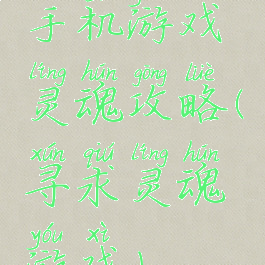 手机游戏
líng hún gōng lüè
灵魂攻略(
xún qiú líng hún
寻求灵魂
yóu xì
游戏)